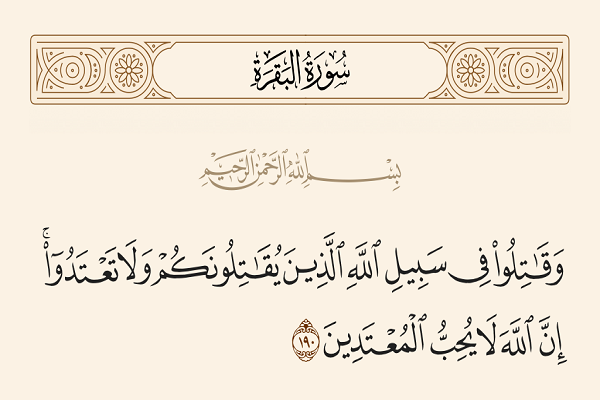 سُورَةُ البَقَرَةِ
بِسْمِ ٱللَّهِ ٱلرَّحْمَٰنِ ٱلرَّحِيمِ
وَقَٰتِلُوا۟ فِى سَبِيلِ ٱللَّهِ ٱلَّذِينَ يُقَٰتِلُونَكُمْ وَلَا تَعْتَدُوٓا۟ ۚ
إِنَّ ٱللَّهَ لَا يُحِبُّ ٱلْمُعْتَدِينَ ١٩٠